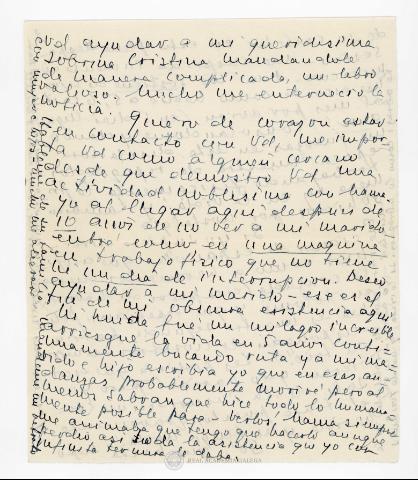 Vd ayudar a mi queridisima
Sobrina Cristina mandandole
de manera complicada, un libro
valioso. Mucho me enternecio la
noticia. Quiero de corazon estar
en contacto con Vd, me impor-
ta Vd como alguien cercano
desde que demostro Vd una
actividad noblisima con mama.
Yo al llegar aqui despues de
10 años de no ver a mi marido
entré como en una maquina
en trabajo fisico que no tiene
ni un dia de interrupcion. Deseo
ayudar a mi marido - ese es el
fin de mi obscura existencia aqui
Mi huida fué un milagro increible
arriesque la vida en 5 años conti-
nuamente bucando ruta y a mi ma-
rido e hijo escribia yo que en esas an-
danzas, probablemente moriré pero al
menos sabran que hice todo lo humana-
mente posible para - verlos, mama siempre
me animaba que tengo que hacerlo aunque
perdio asi toda la asistencia que yo con
infinita ternura le daba.
con mujer e hijos mucho me alegraria.
REAL ACADEMIA GALEGA